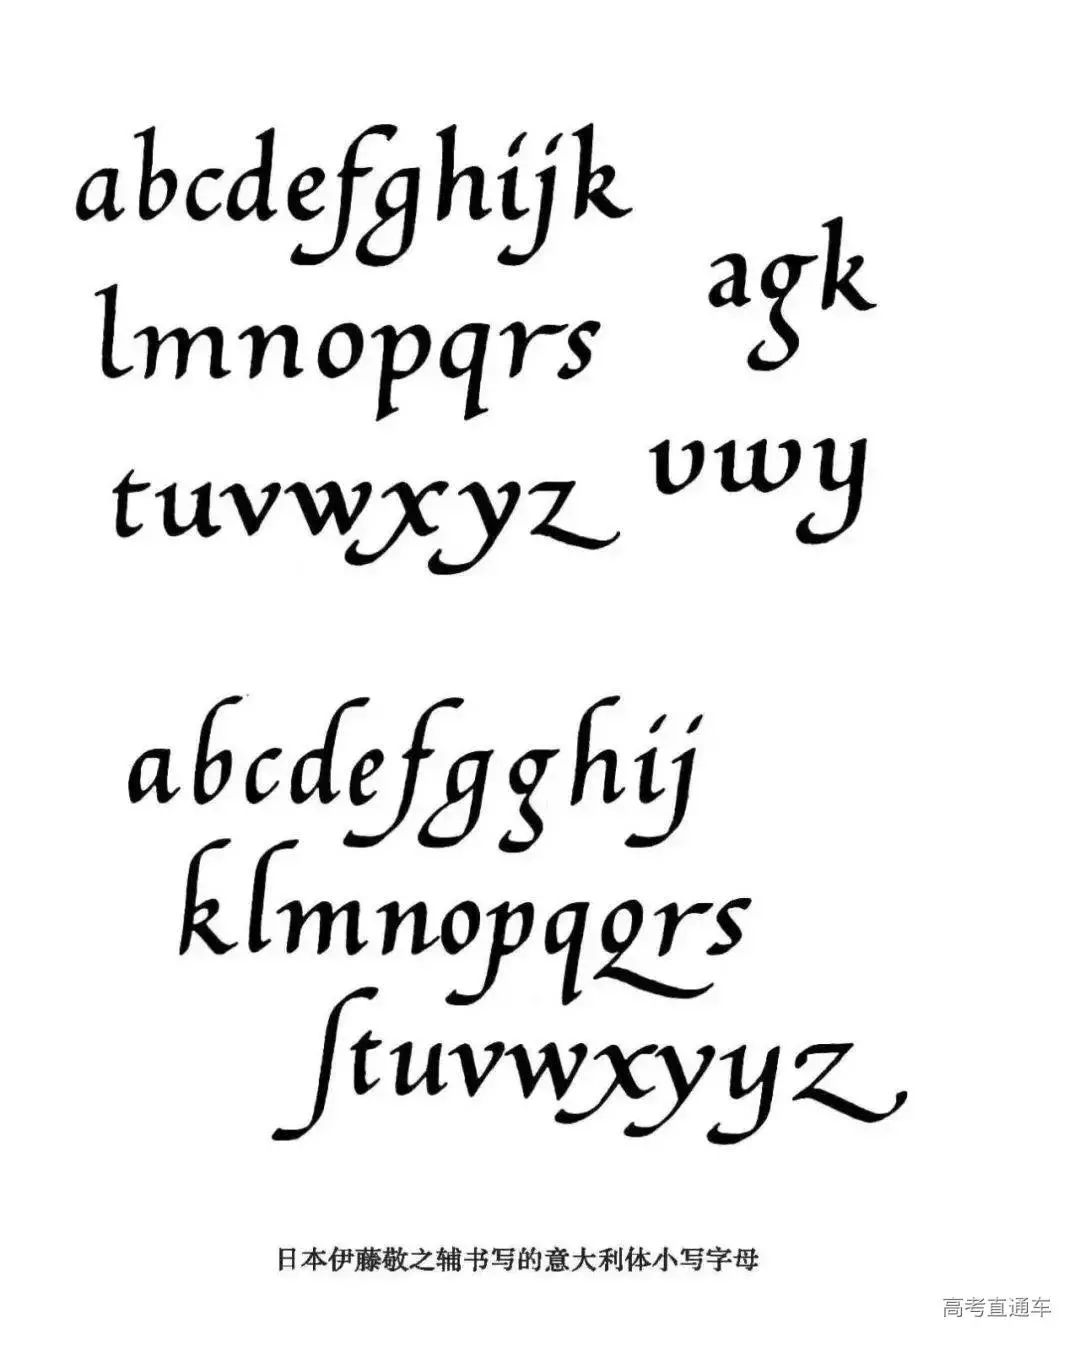 abcdefghijk
agk
lmnopqrs
vwy
tuvwxyz
abcdefgghij
klmnopqqrs
ſtuvwxyyz
日本伊藤敬之辅书写的意大利体小写字母
高考直通车